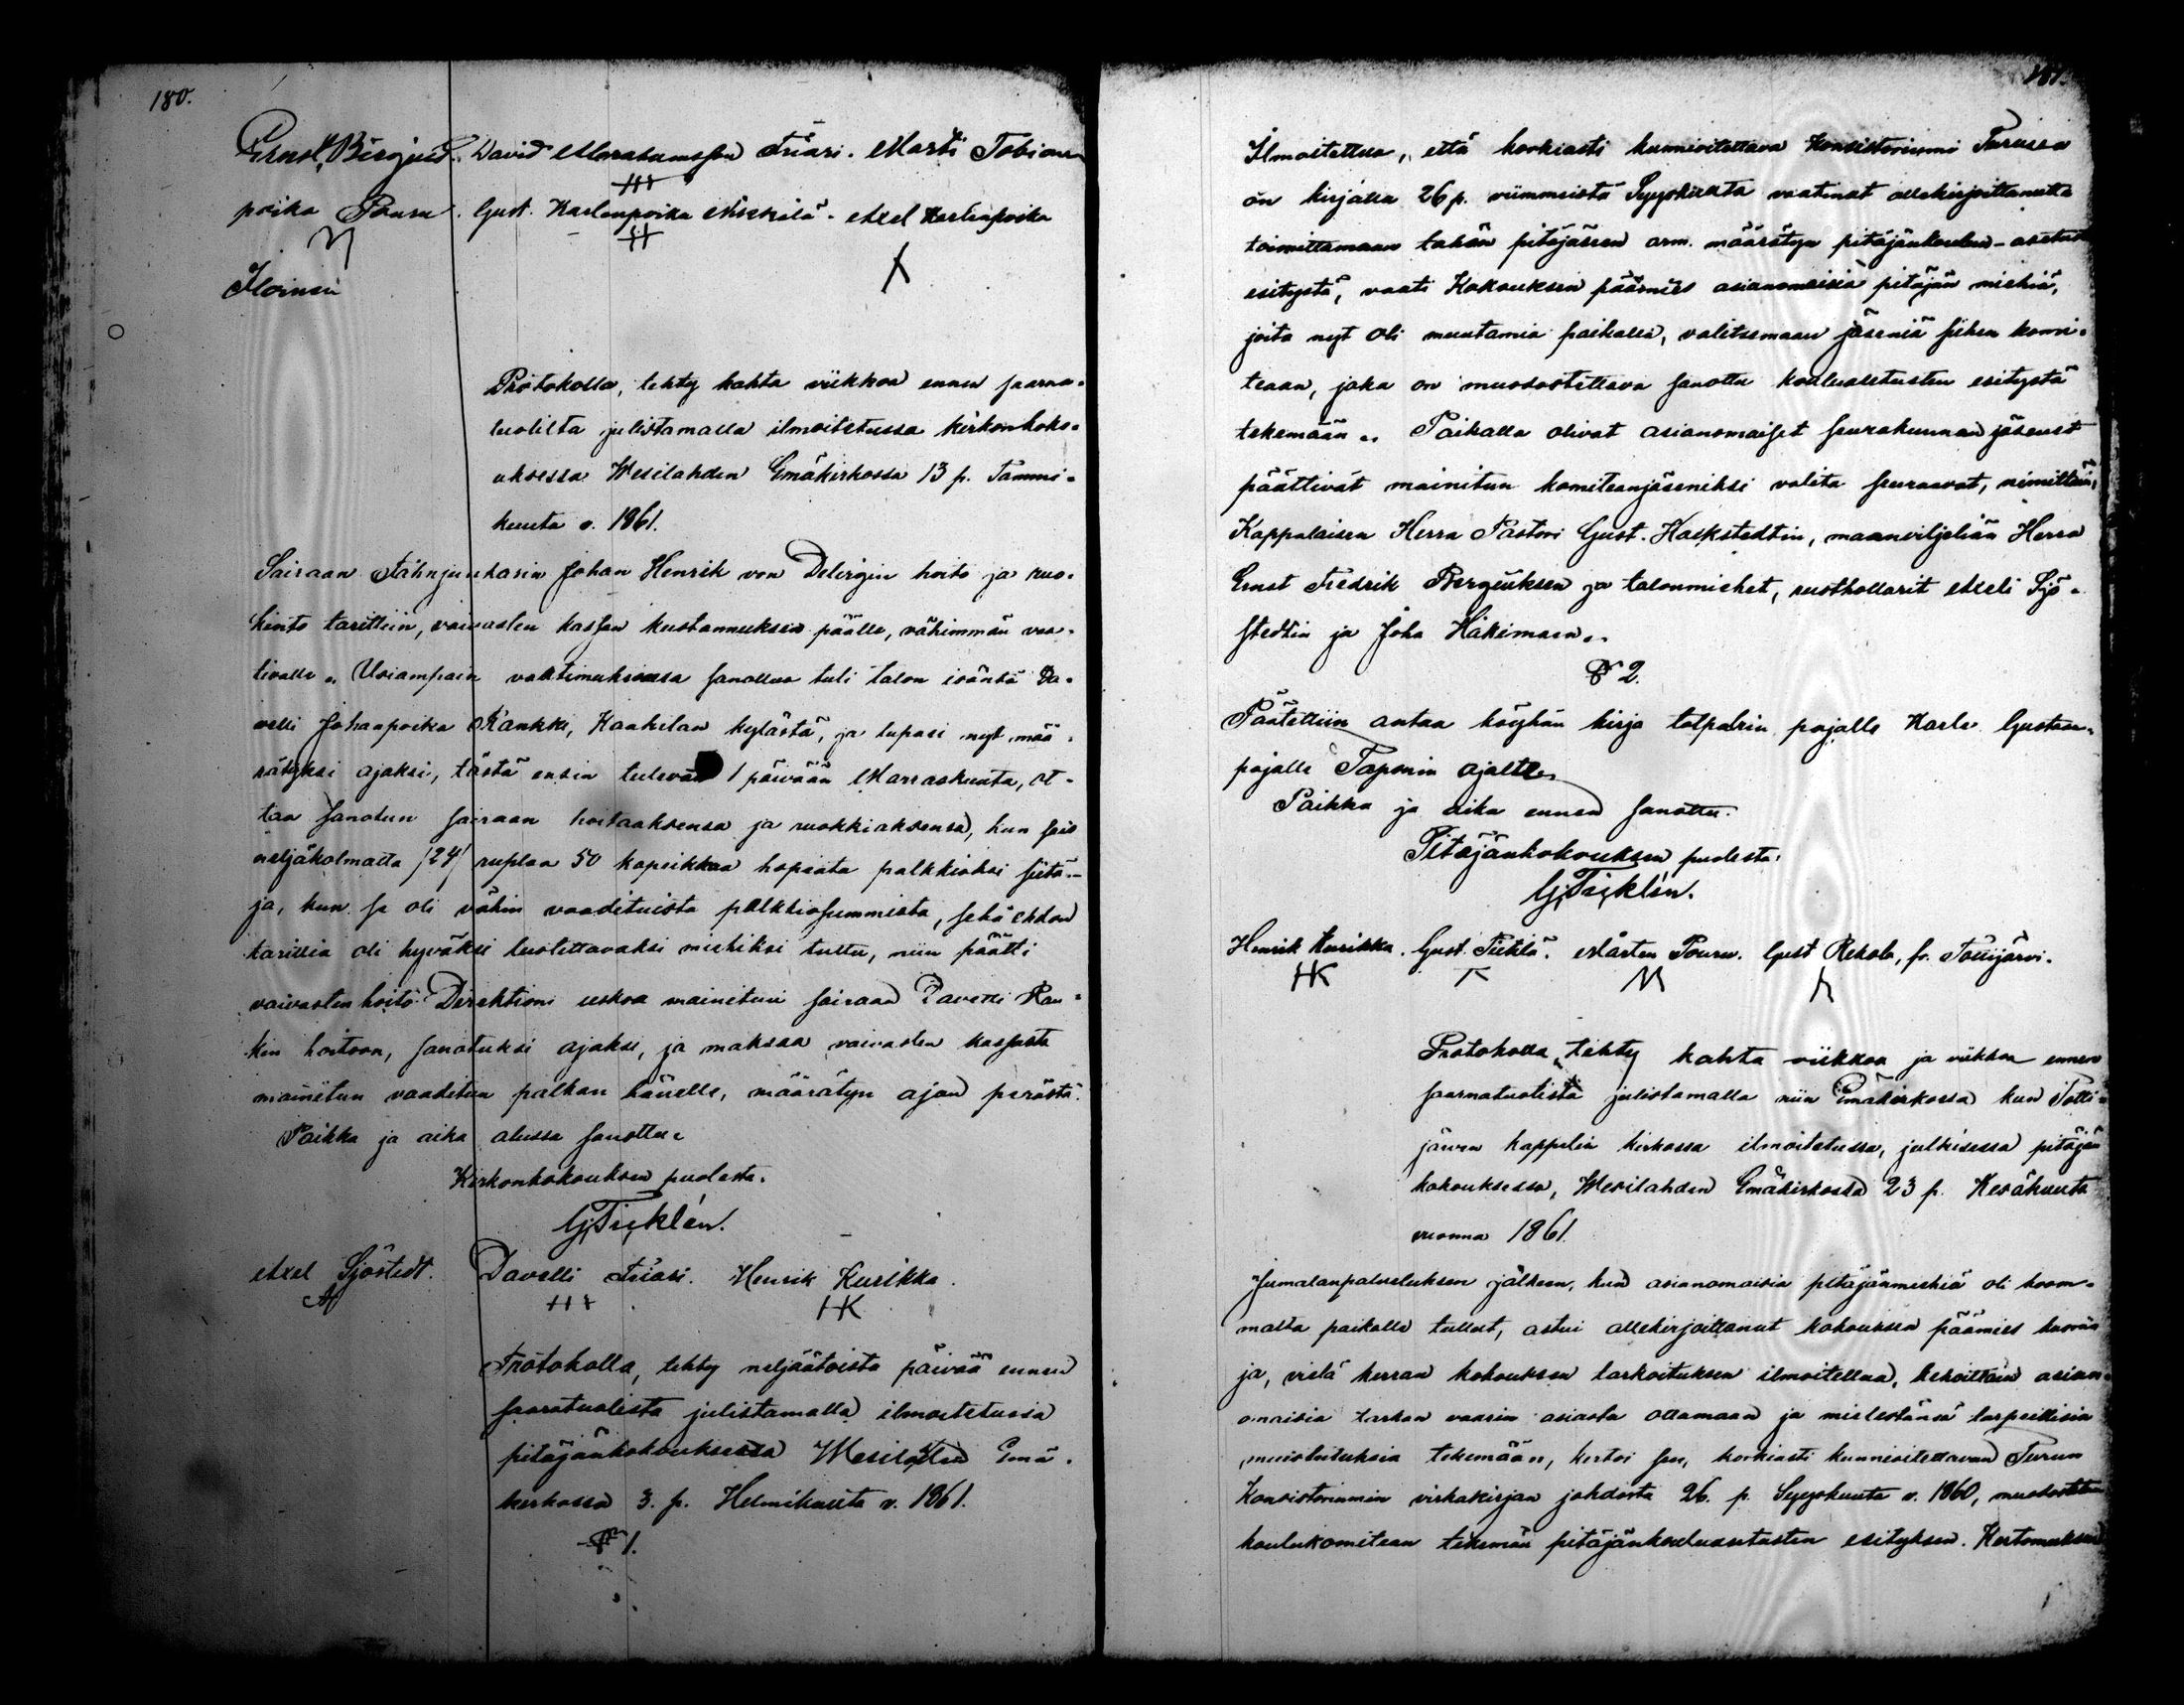 180.
Ernst Bergjud. David Abrahamsson Friari. Martti Tobiaan
poika Pouru. Gust. Karlenpoika Miekkilä. Axel Karlenpoika
Iloinen
Protokolla, tehty kahta viikkoa ennen saarna-
tuolilta julistamalla ilmoitetussa kirkonkoko-
uksessa Wesilahden Emäkirkossa 13 p. Tammi-
kuuta v. 1861.
Sairaan Fähnjunkarin Johan Henrik von Delvigin hoito ja ruo-
kinto tarittiin, vaivasten kassan kustannuksen päälle, vähimmän vaa-
tivalle. Usiampain vaatimuksessa sanottua tuli talon isäntä Da-
velli Johanpoika Rankki, Kaakilan kylästä, ja lupasi nyt mää-
rätyksi ajaksi, tästä ensin tulevan 1 päivään Marraskuuta, ot-
taa sanotun sairaan hoitaaksensa ja ruokkiaksensa, kun sais
neljäkolmatta /24/ ruplaa 50 kopeikkaa hopiata palkkioksi siitä-
ja, kun se oli vähin vaadituista palkkiosummista, sekä ehdon
tarittia oli hyväksi luotettavaksi miehiksi tuttu, niin päätti
vaivasten hoito-Direktioni uskoa mainitun sairaan Davelli Ran-
kin hoitoon, sanotuksi ajaksi, ja maksaa vaivasten kassasta
mainitun vaaditun palkan hänelle, määrätyn ajan perästä.
Paikka ja aika alussa sanottu.
Kirkonkokouksen puolesta.
G. Ticklén.
Axel Sjöstedt. Davelli Friari. Henrik Kurikka.
HK
Protokolla, tehty neljäätoista päivää ennen
saarnatuolista julistamalla ilmoitetussa
pitäjänkokouksessa Wesilahden Emä-
kirkossa 3. p. Helmikuuta v. 1861.
§ 1.
181.
Ilmoitettua, että korkiasti kunnioitettava Konsistoriumi Turussa
on kirjalla 26 p. viimmeistä Syyskuuta vaatinut allekirjoittanutta
toimittamaan tähän pitäjäseen arm. määrätyn pitäjänkoulun-asetus
esitystä, vaati Kokouksen päämies asianomaisia pitäjän miehiä,
joita nyt oli muutamia paikalla, valitsemaan jäseniä siihen komi-
teaan, joka on muodostettava sanottu kouluasetusten esitystä
tekemään. Paikalla olivat asianomaiset seurakunnan jäsenet
päättivät mainitun komiteanjäseniksi valita seuraavat, nimittäin,
Kappalaisen Herra Pastori Gust. Hackstedtin, maanviljeliän Herra
Ernst Fredrik Bergjuksen ja talonmiehet, rusthollarit Axeli Sjö-
stedtin ja Joha Hakimaan.
§ 2.
Päätettiin antaa köyhän kirja torpparin pojalle Karle Gustaan-
pojalle Taponin ajalta
Paikka ja aika ennen sanottu.
Pitäjänkokouksen puolesta:
G. Ticklén.
Henrik Kurikka. Gust. Pietilä. Mårten Pouru. Gust Rekola, fr. Tottijärvi.
HK
Protokolla, tehty kahta viikkoa ja viikkoa ennen
saarnatuolista julistamalla niin Emäkirkossa kun Totti-
järven kappelin kirkossa ilmoitetussa, julkisessa pitäjän
kokouksessa, Wesilahden Emäkirkossa 23 p. Kesäkuuta
vuonna 1861.
Jumalanpalveluksen jälkeen, kun asianomaisia pitäjänmiehiä oli koom-
malta paikalle tulleet, astui allekirjoittanut kokouksen päämies
ja, vielä kerran kokouksen tarkoituksen ilmoitettua, kehoittain asian-
omaisia tarkan vaarin asiasta ottamaan ja mielestänsä tarpeillisia
muistutuksia tekemään, kertoi sen, korkiasti kunnioitettavan Turun
Konsistoriumin virkakirjan johdosta 26. p. Syyskuuta v. 1860, muodostetun
koulukomitean tekemän pitäjänkouluasetusten esityksen. Kertomuksen